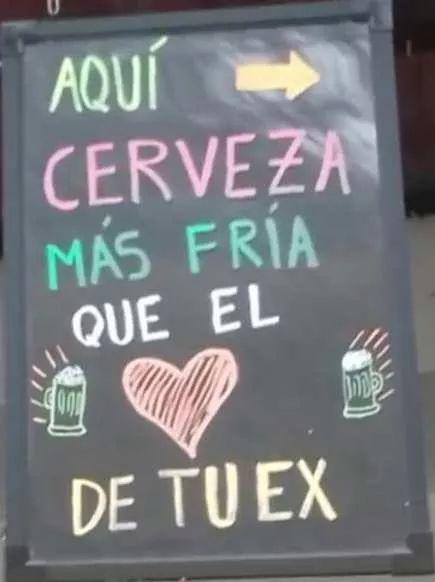 AQUÍ
CERVEZA
MÁS FRÍA
QUE EL
DE TU EX